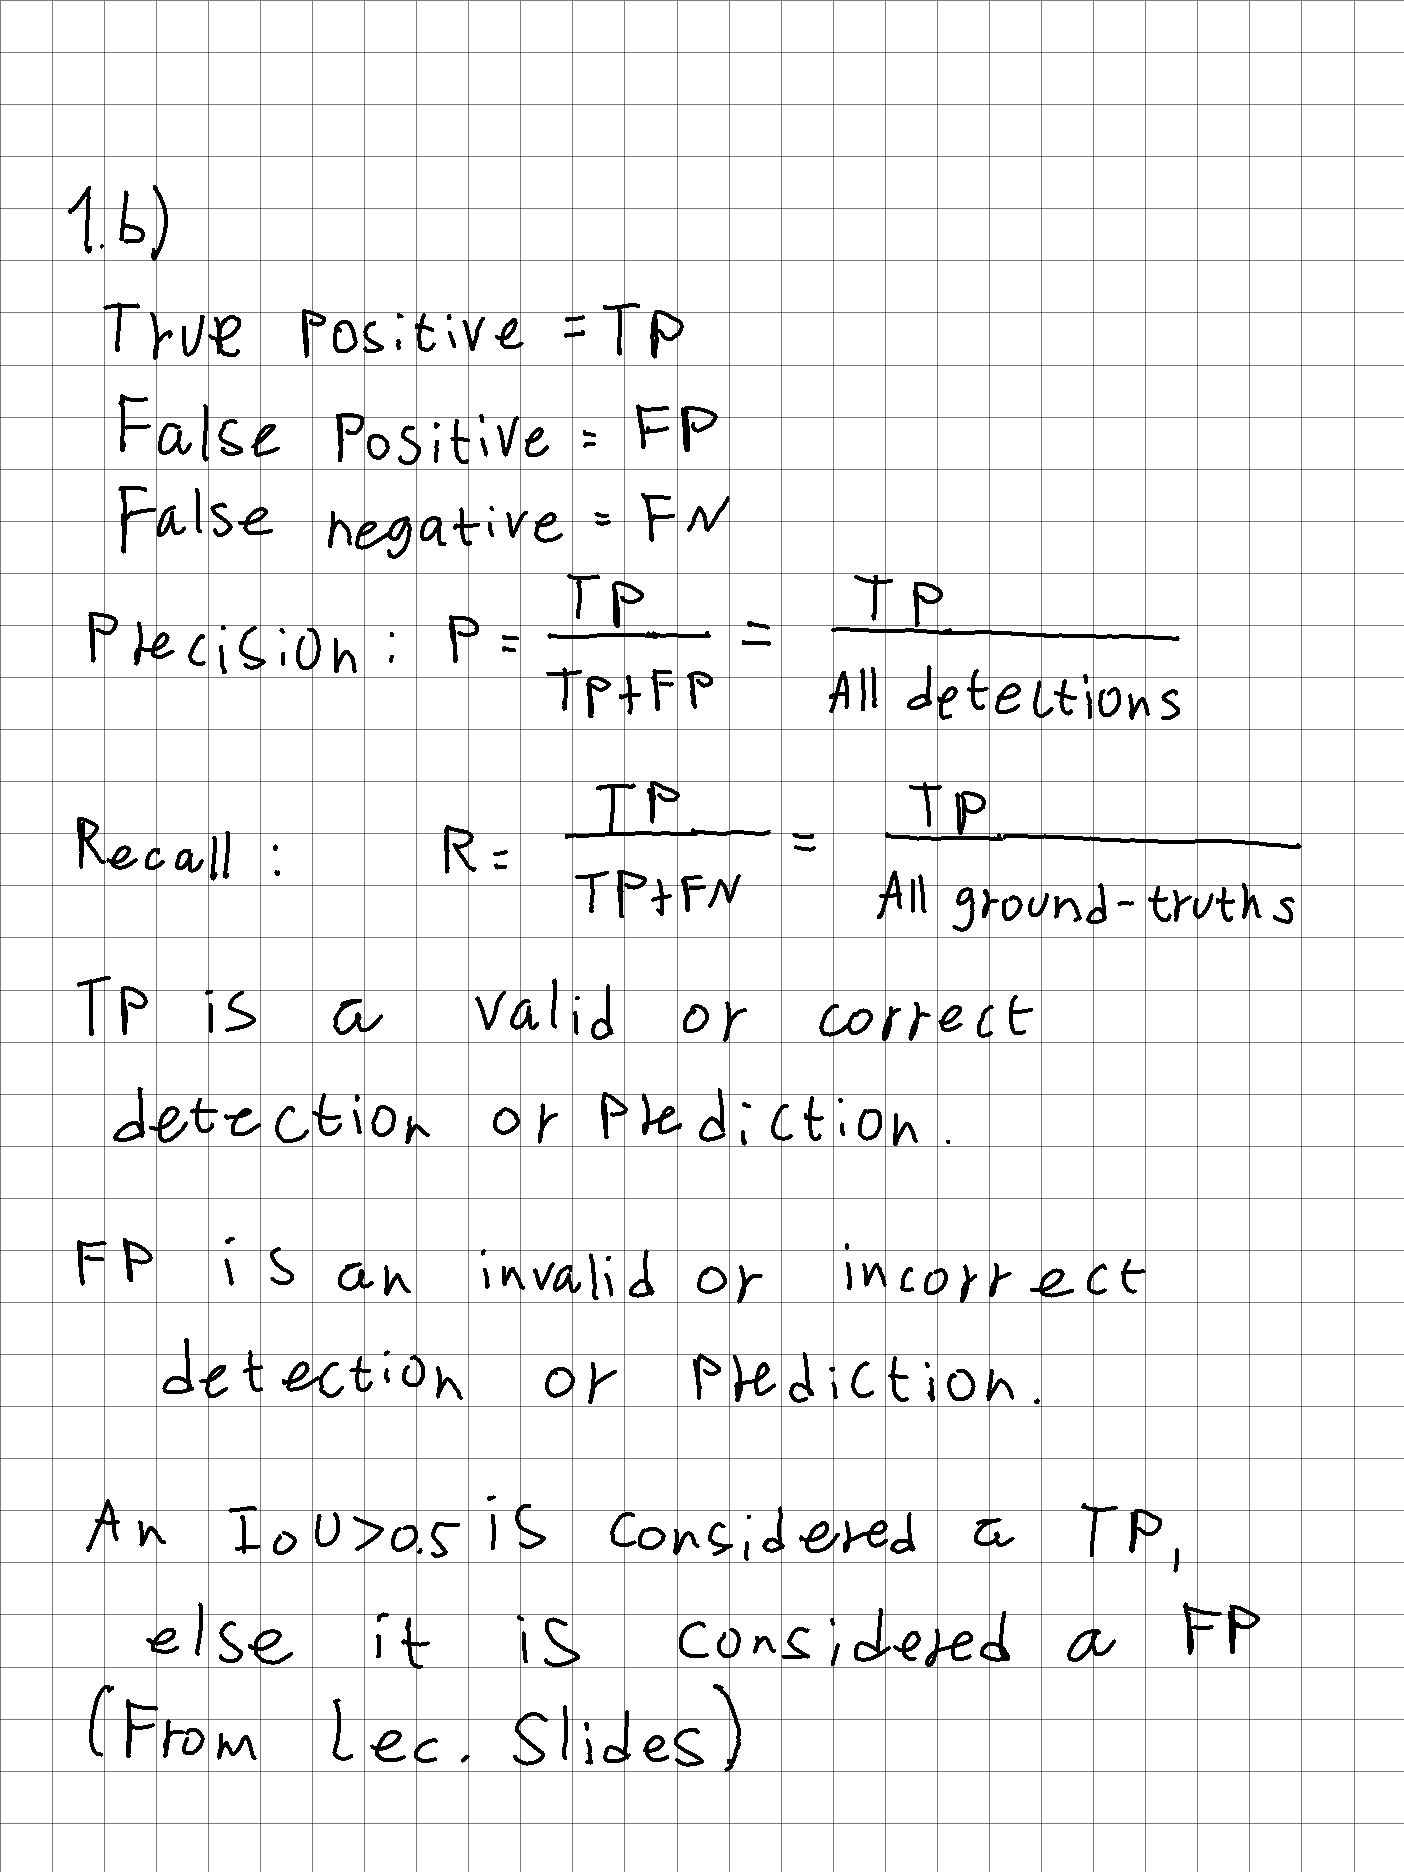 1.b)
True Positive = TP
False Positive = FP
False negative = FN
Precision: P = TP / TP+FP = TP / All detections
Recall: R = TP / TP+FN = TP / All ground-truths
TP is a valid or correct
detection or prediction.
FP is an invalid or incorrect
detection or prediction.
An IoU>0.5 is considered a TP,
else it is considered a FP
(From Lec. Slides)